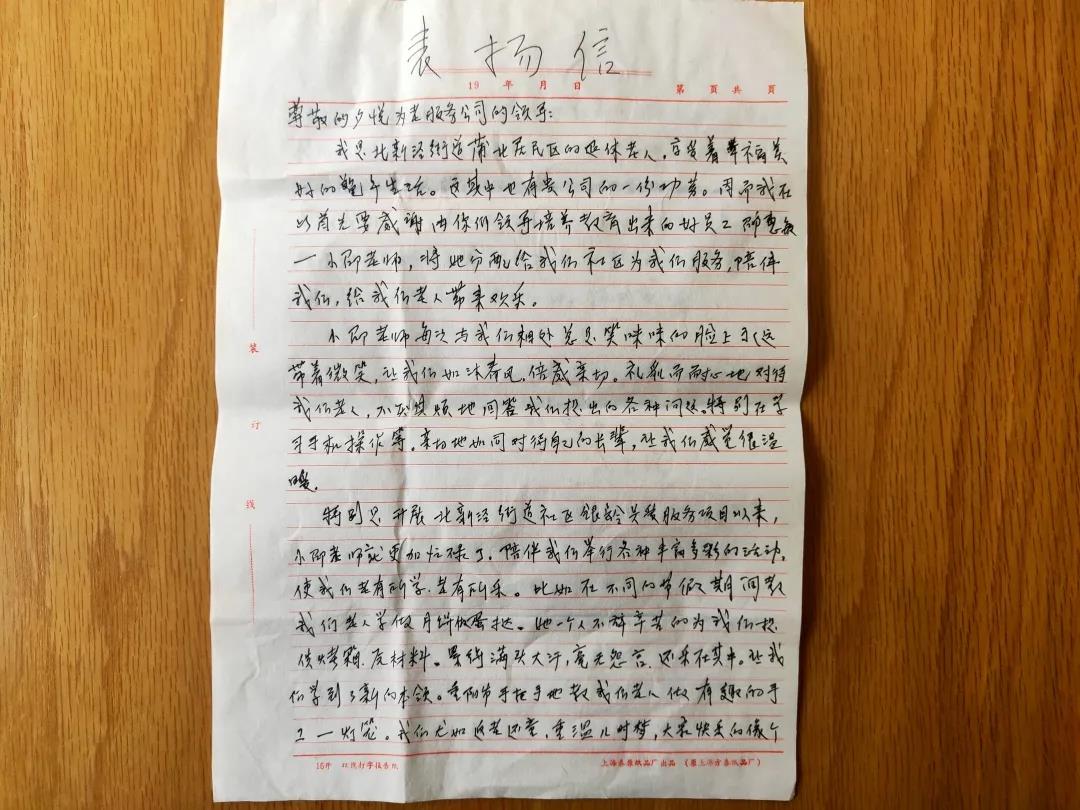 表扬信
19 年 月 日 第 页 共 页
尊敬的夕悦为老服务公司的领导:
我是北新泾街道蒲北居民区的退休老人,享受着幸福美
好的晚年生活。这其中也有贵公司的一份功劳。因而我在
以首先要感谢由你们领导培养教育出来的好员工邵惠敏
一小邵老师,将她分配给我们社区为我们服务,陪伴
我们,给我们老人带来欢乐。
小邵老师每次与我们相处总是笑咪咪的脸上永远
带着微笑,让我们如沐春风,倍感亲切。礼貌而耐心地对待
我们老人,不厌其烦地回答我们提出的各种问题。特别在学
习手机操作等。亲切地如同对待自己的长辈,让我们感觉很温
暖。
特别是开展北新泾街道社区银龄e族服务项目以来,
小邵老师就更加忙碌了。陪伴我们举行各种丰富多彩的活动,
使我们老有所学.老有所乐。比如在不同的节假期间教
我们老人学做月饼做蛋挞。她一个人不辞辛苦的为我们提
供烤箱.及材料。累得满头大汗,毫无怨言.还乐在其中。让我
们学到了新的本领。重阳节手把手地教我们老人做有趣的手
工一灯笼。我们尤如返老还童,重温儿时梦,大家快乐的像个
装
订
线
16开 双线打字报告纸 上海泰康纸品厂出品